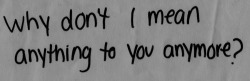 why don't I mean
anything to you anymore?